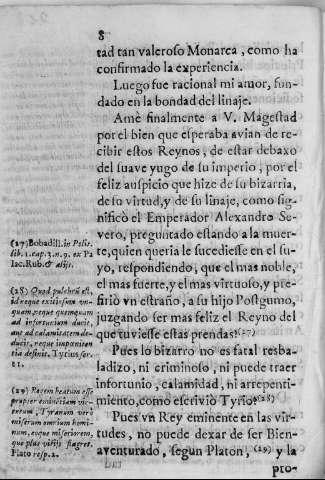 8
tad tan valeroso Monarca, como ha
confirmado la experiencia.
Luego fue racional mi amor, fun-
dado en la bondad del linaje.
Amè finalmente a V. Magestad
por el bien que esperaba avian de re-
cibir estos Reynos, de estar debaxo
del suave yugo de su imperio, por el
feliz auspicio que hize de su bizarria,
de su virtud, y de su linaje, como sig-
nificò el Emperador Alexandro Se-
vero, preguntado estando a la muer-
te, quien queria le sucediesse en el su-
yo, respondiendo, que el mas noble,
el mas fuerte, y el mas virtuoso, y pre-
firiò vn estraño, a su hijo Postgumo,
juzgando ser mas feliz el Reyno del
que tuviesse estas prendas. (27)
Pues lo bizarro no es fatal resba-
ladizo, ni criminoso, ni puede traer
infortunio, calamidad, ni arrepenti-
miento, como escriviò Tyrio. (28)
Pues vn Rey eminente en las vir-
tudes, no puede dexar de ser Bien-
aventurado, segun Platon, (29) y la
pro-
(27) Bobadill. in Polit.
lib. 1. cap. 3. n. 9. ex Pa
lac. Rub. & alijs.
(28) Quod pulchrũ est,
id neque exitiosum vn-
quam, neque quemquam
ad infortunium ducit,
aut ad calamitatem de-
ducit, neque impoeniten
tia desinit. Tyrius ser.
21.
(29) Regem beatum esse
propter eminentiam vir-
tutum, Tyranum verò
miserum omnium homi-
num, eoque miseriorem,
que plus vitijs flagret.
Plato resp. 2.